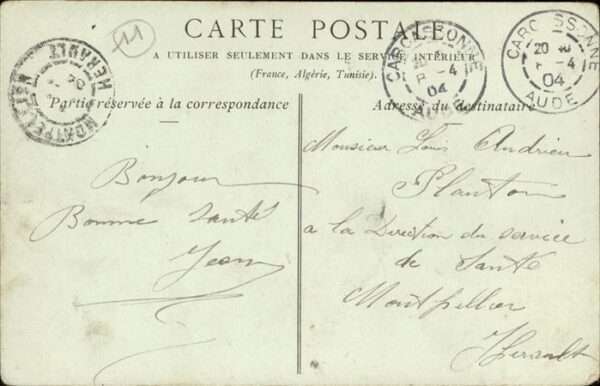 11
CARTE POSTALE
A UTILISER SEULEMENT DANS LE SERVICE INTÉRIEUR
(France, Algérie, Tunisie).
Partie réservée à la correspondance
Adresse du destinataire
CARCASSONNE
4
04
AUDE
CARCASSONNE
20
4
04
AUDE
MONTPELLIER
HERAULT
04
Bonjour
Bonne santé
Jean
Monsieur Louis Andrieu
Planton
a la Direction du service
de Santé
Montpellier
Herault